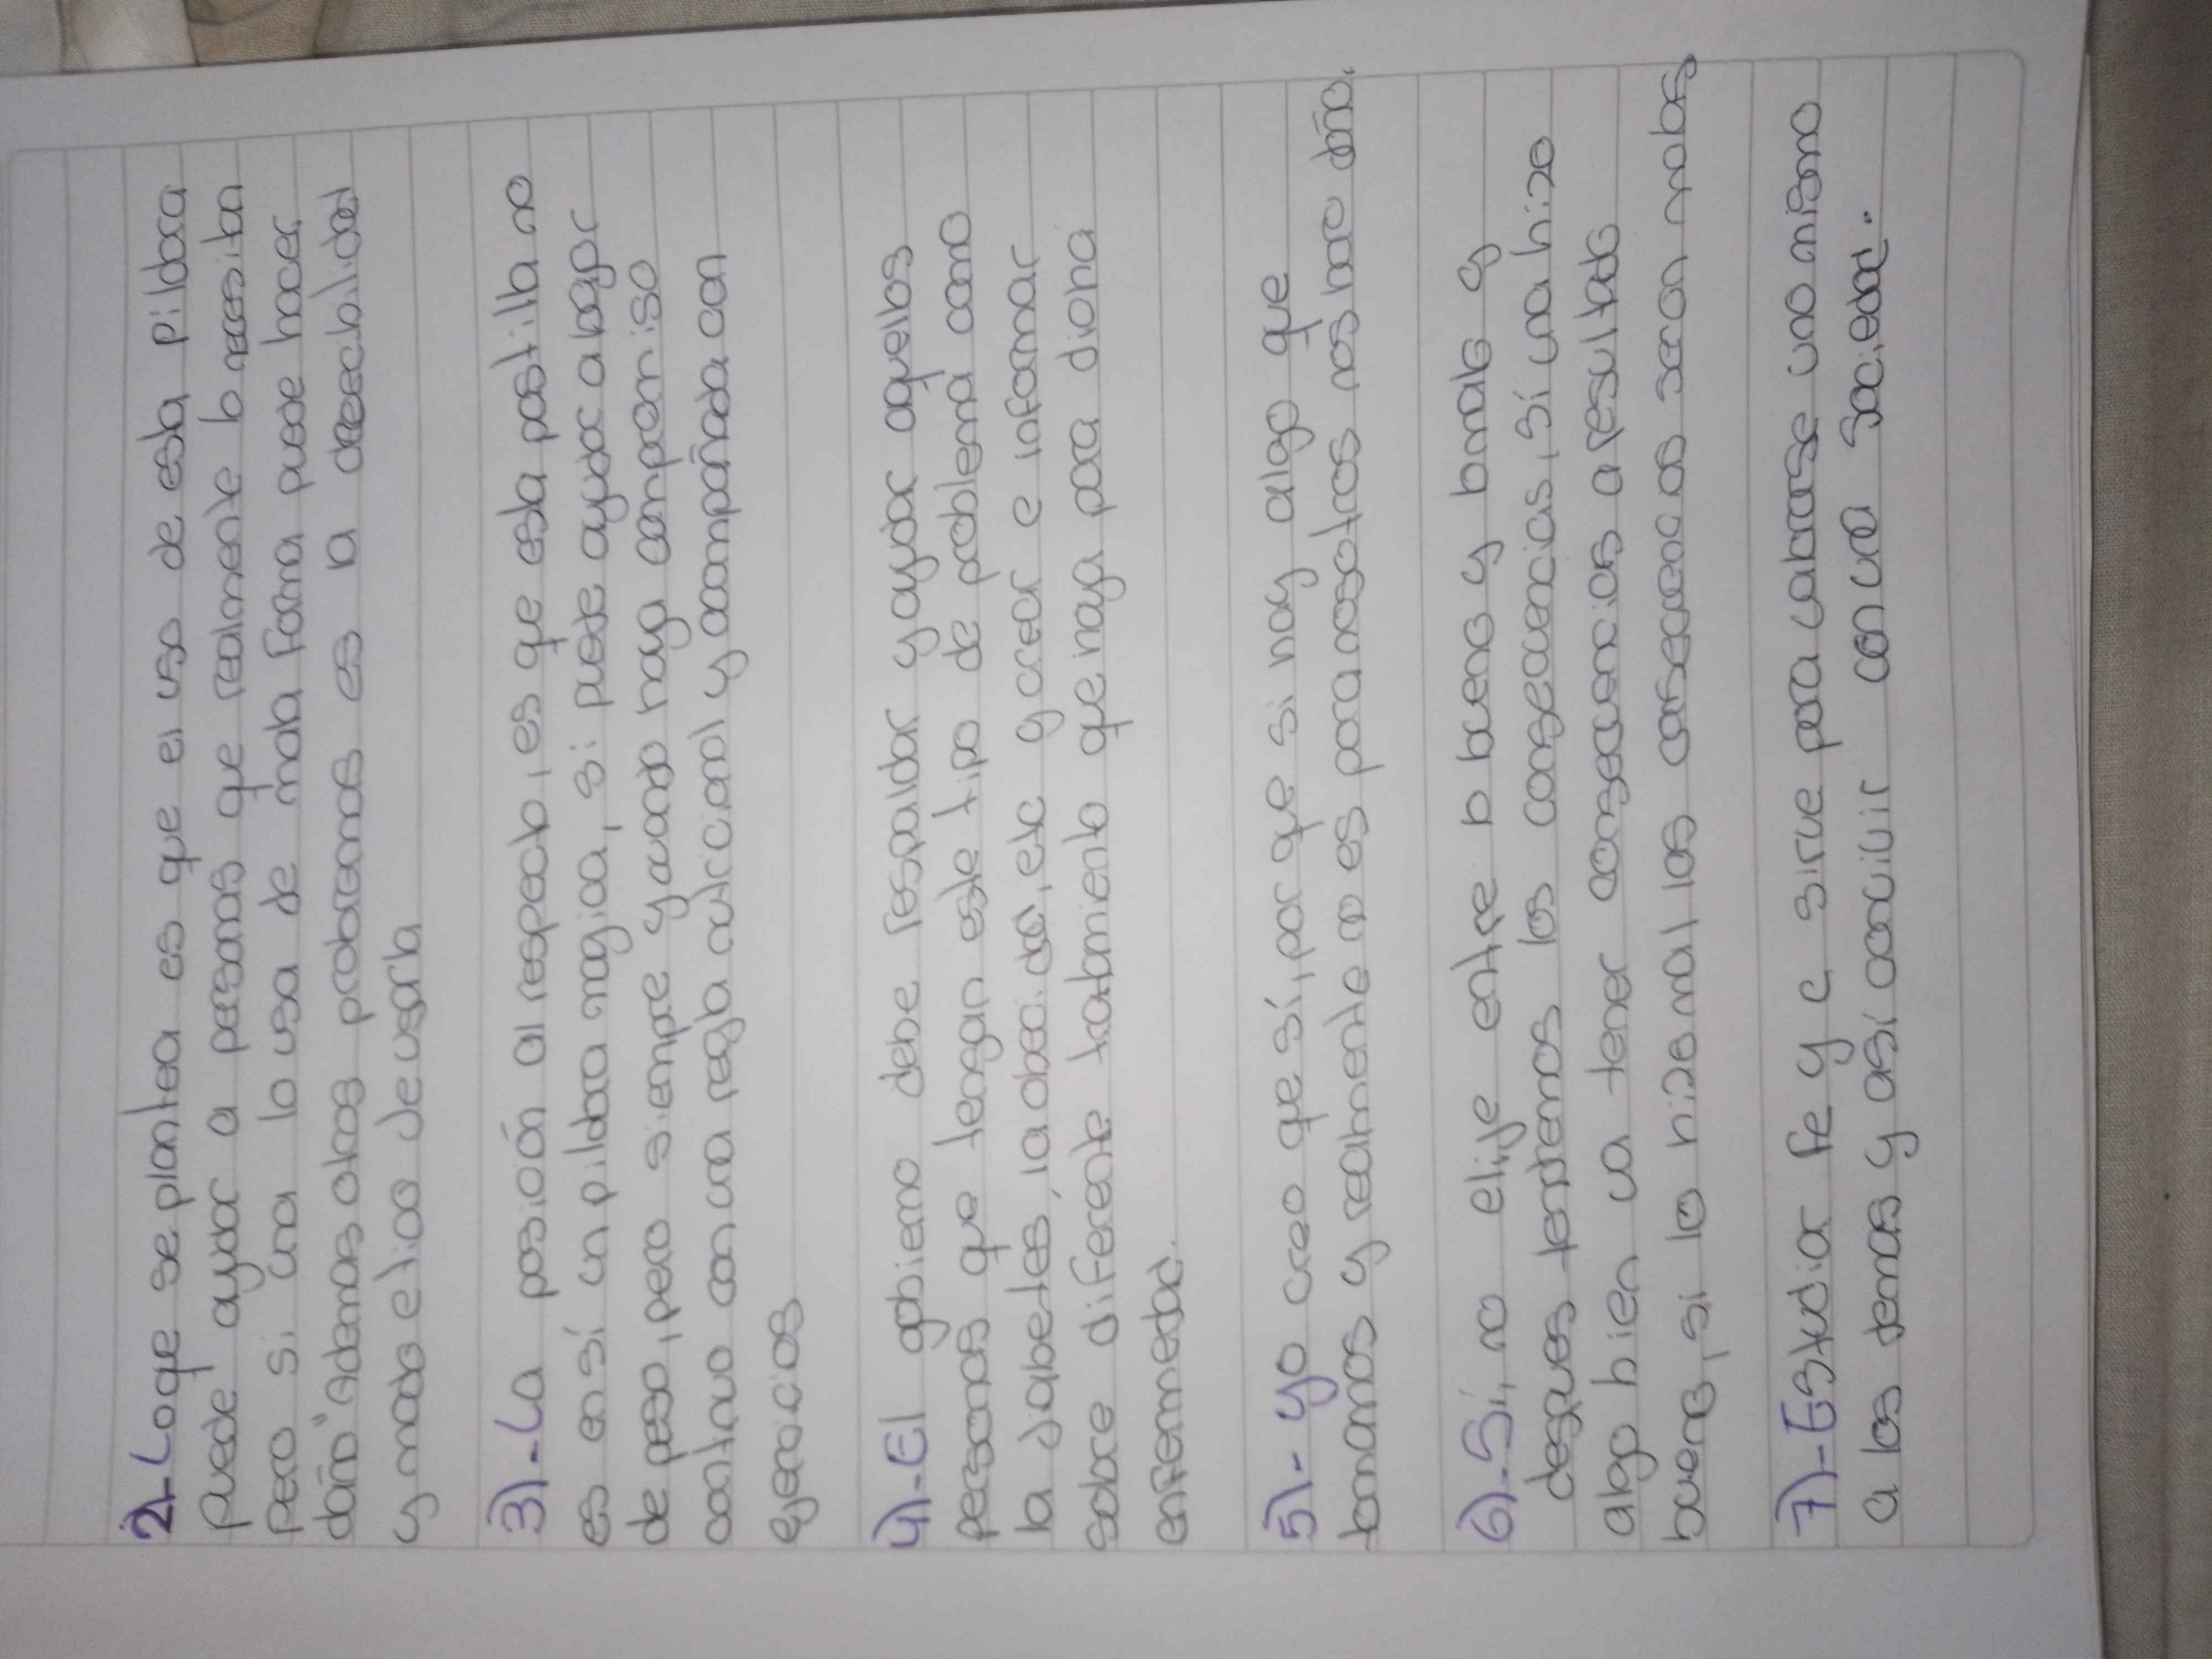 2)-Lo que se plantea es que el uso de esta pildora
puede ayudar a personas que realmente lo necesitan
pero si una lo usa de mala forma puede hacer
daño "Ademas otros probremos es la
y modo etico de usarla
3)-La posición al respecto, es que esta pastilla no
es en sí un pildora magica, si puede ayudar a bajar
de peso, pero siempre y cuando haya compromiso
continuo con una regla nutricional y acompañada con
ejercicios
4)-El gobierno debe respaldar y ayudar aquellos
personas que tengan este tipo de problema como
la diabetes, la obecidad, etc y crear e informar
sobre diferente tratamiento que haya para dicha
enfermedad.
5)- yo creo que sí, por que si hay algo que
tomamos y realmente no es para nosotros nos hace daño.
6)-Sí, no elije entre lo bueno y lo malo y
despues tendremos las consecuencias, sí una hizo
algo bien va tener consecuencias a resultado
buena, si lo hizo mal las consecuencias seran malas
7)-Estudiar Fe y C sirve para valorarse uno mismo
a los demas y así convivir con una sociedad.